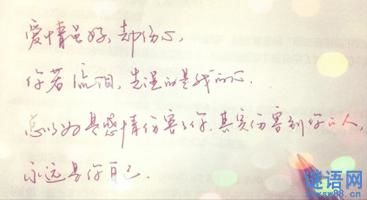 爱情虽好，却伤心，
你若流泪，先湿的是我的心．
总以为是感情伤害了你，其实伤害到你的人，
永远是你自己．
谜语网
www88.cn